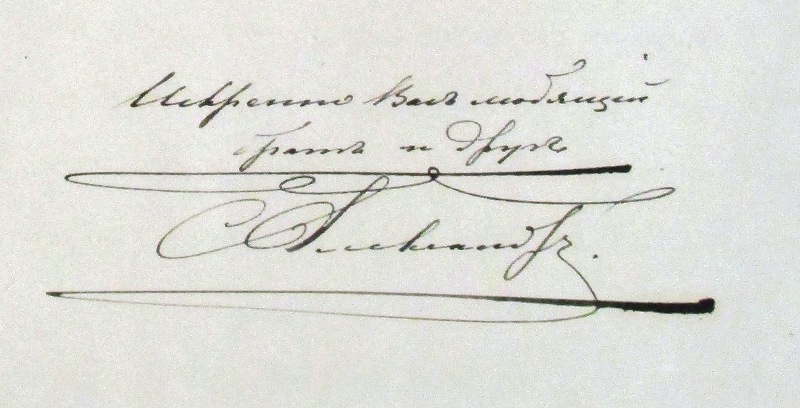 Искренно Васъ любящій
братъ и другъ
Александръ.